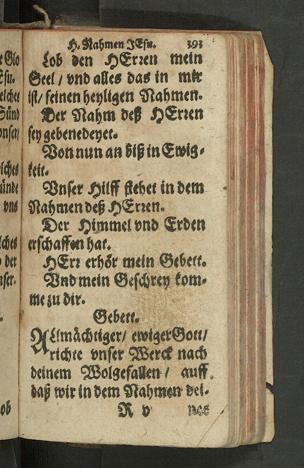 H. Nahmen JEsu. 393
Lob den HErren mein
Seel / vnd alles das in mir
ist / seinen heyligen Nahmen.
Der Nahm deß HErren
sey gebenedeyet.
Von nun an biß in Ewig-
keit.
Vnser Hilff stehet in dem
Nahmen deß HErren.
Der Himmel vnd Erden
erschaffen hat.
HErr erhör mein Gebett.
Vnd mein Geschrey kom-
me zu dir.
Gebett.
Allmächtiger / ewiger Gott /
richte vnser Werck nach
deinem Wolgefallen / auff
daß wir in dem Nahmen dei-
R v nes